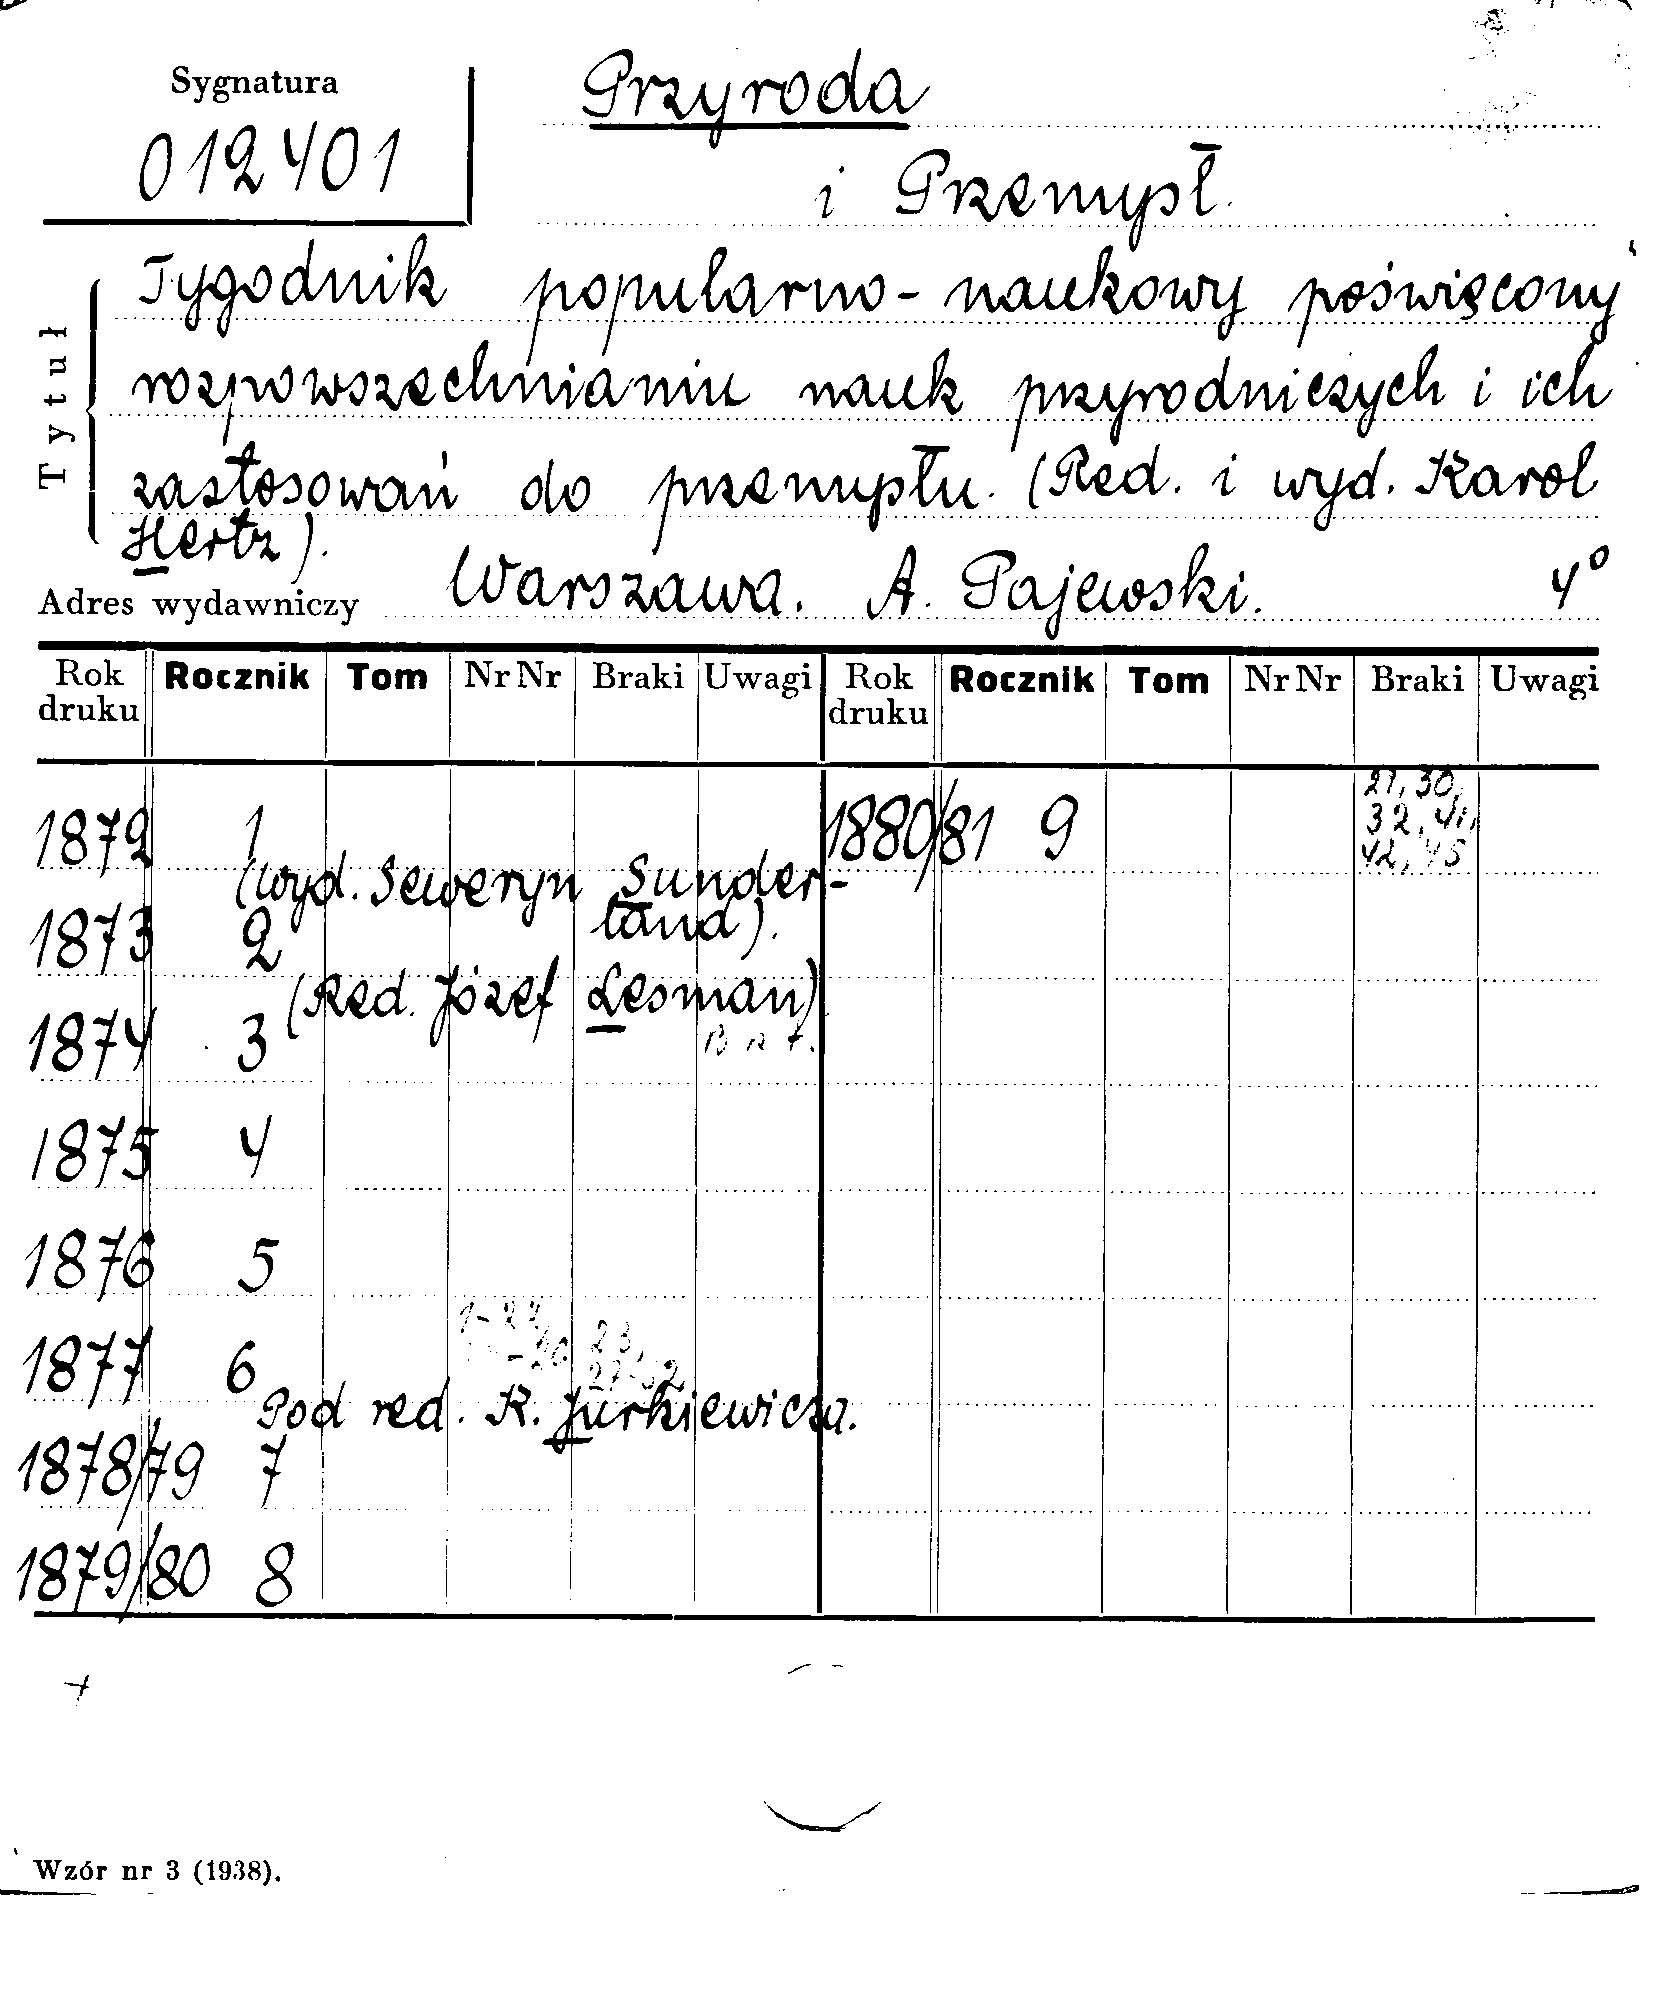 Sygnatura
012401
Przyroda
i Przemysł.
Tytuł
Tygodnik popularno-naukowy poświęcony
rozpowszechnianiu nauk przyrodniczych i ich
zastosowań do przemysłu. (Red. i wyd. Karol
Hertz).
Adres wydawniczy Warszawa. A. Pajewski. 4°
Rok druku Rocznik Tom Nr Nr Braki Uwagi Rok druku Rocznik Tom Nr Nr Braki Uwagi
1872 1 1880/81 9 21, 30, 32, 41, 42, 45
(wyd. Seweryn Sunder-
land).
1873 2
(Red. Józef Lesman)
1874 3
1875 4
1876 5
1877 6 23, 27-52
Pod red. K. Jurkiewicza.
1878/79 7
1879/80 8
Wzór nr 3 (1938).